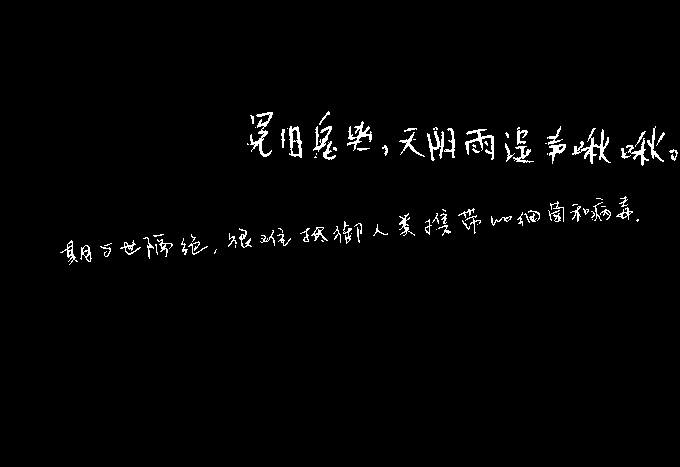 冤旧鬼哭,天阴雨湿声啾啾。
期与世隔绝,很难抵御人类携带的细菌和病毒.